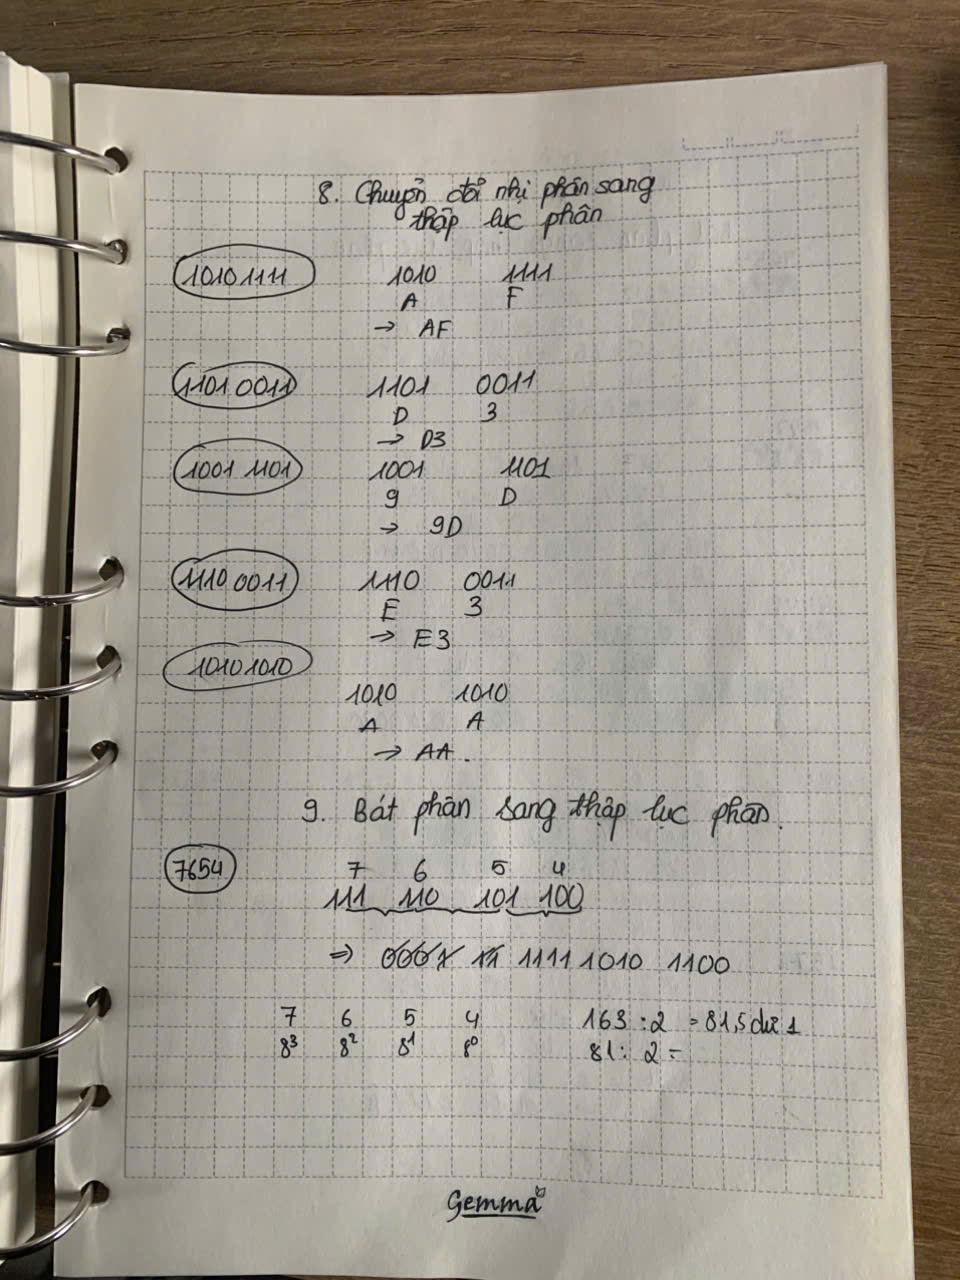 8. Chuyển đổi nhị phân sang
thập lục phân
10101111 1010 1111
A F
→ AF
1101 0011 1101 0011
D 3
→ D3
1001 1101 1001 1101
9 D
→ 9D
1110 0011 1110 0011
E 3
→ E3
10101010
1010 1010
A A
→ AA.
9. Bát phân sang thập lục phân.
7654 7 6 5 4
111 110 101 100
⇒ 1111 1010 1100
7 6 5 4 163 : 2 = 81,5 dư 1
8³ 8² 8¹ 8⁰ 81 : 2 =
Gemma